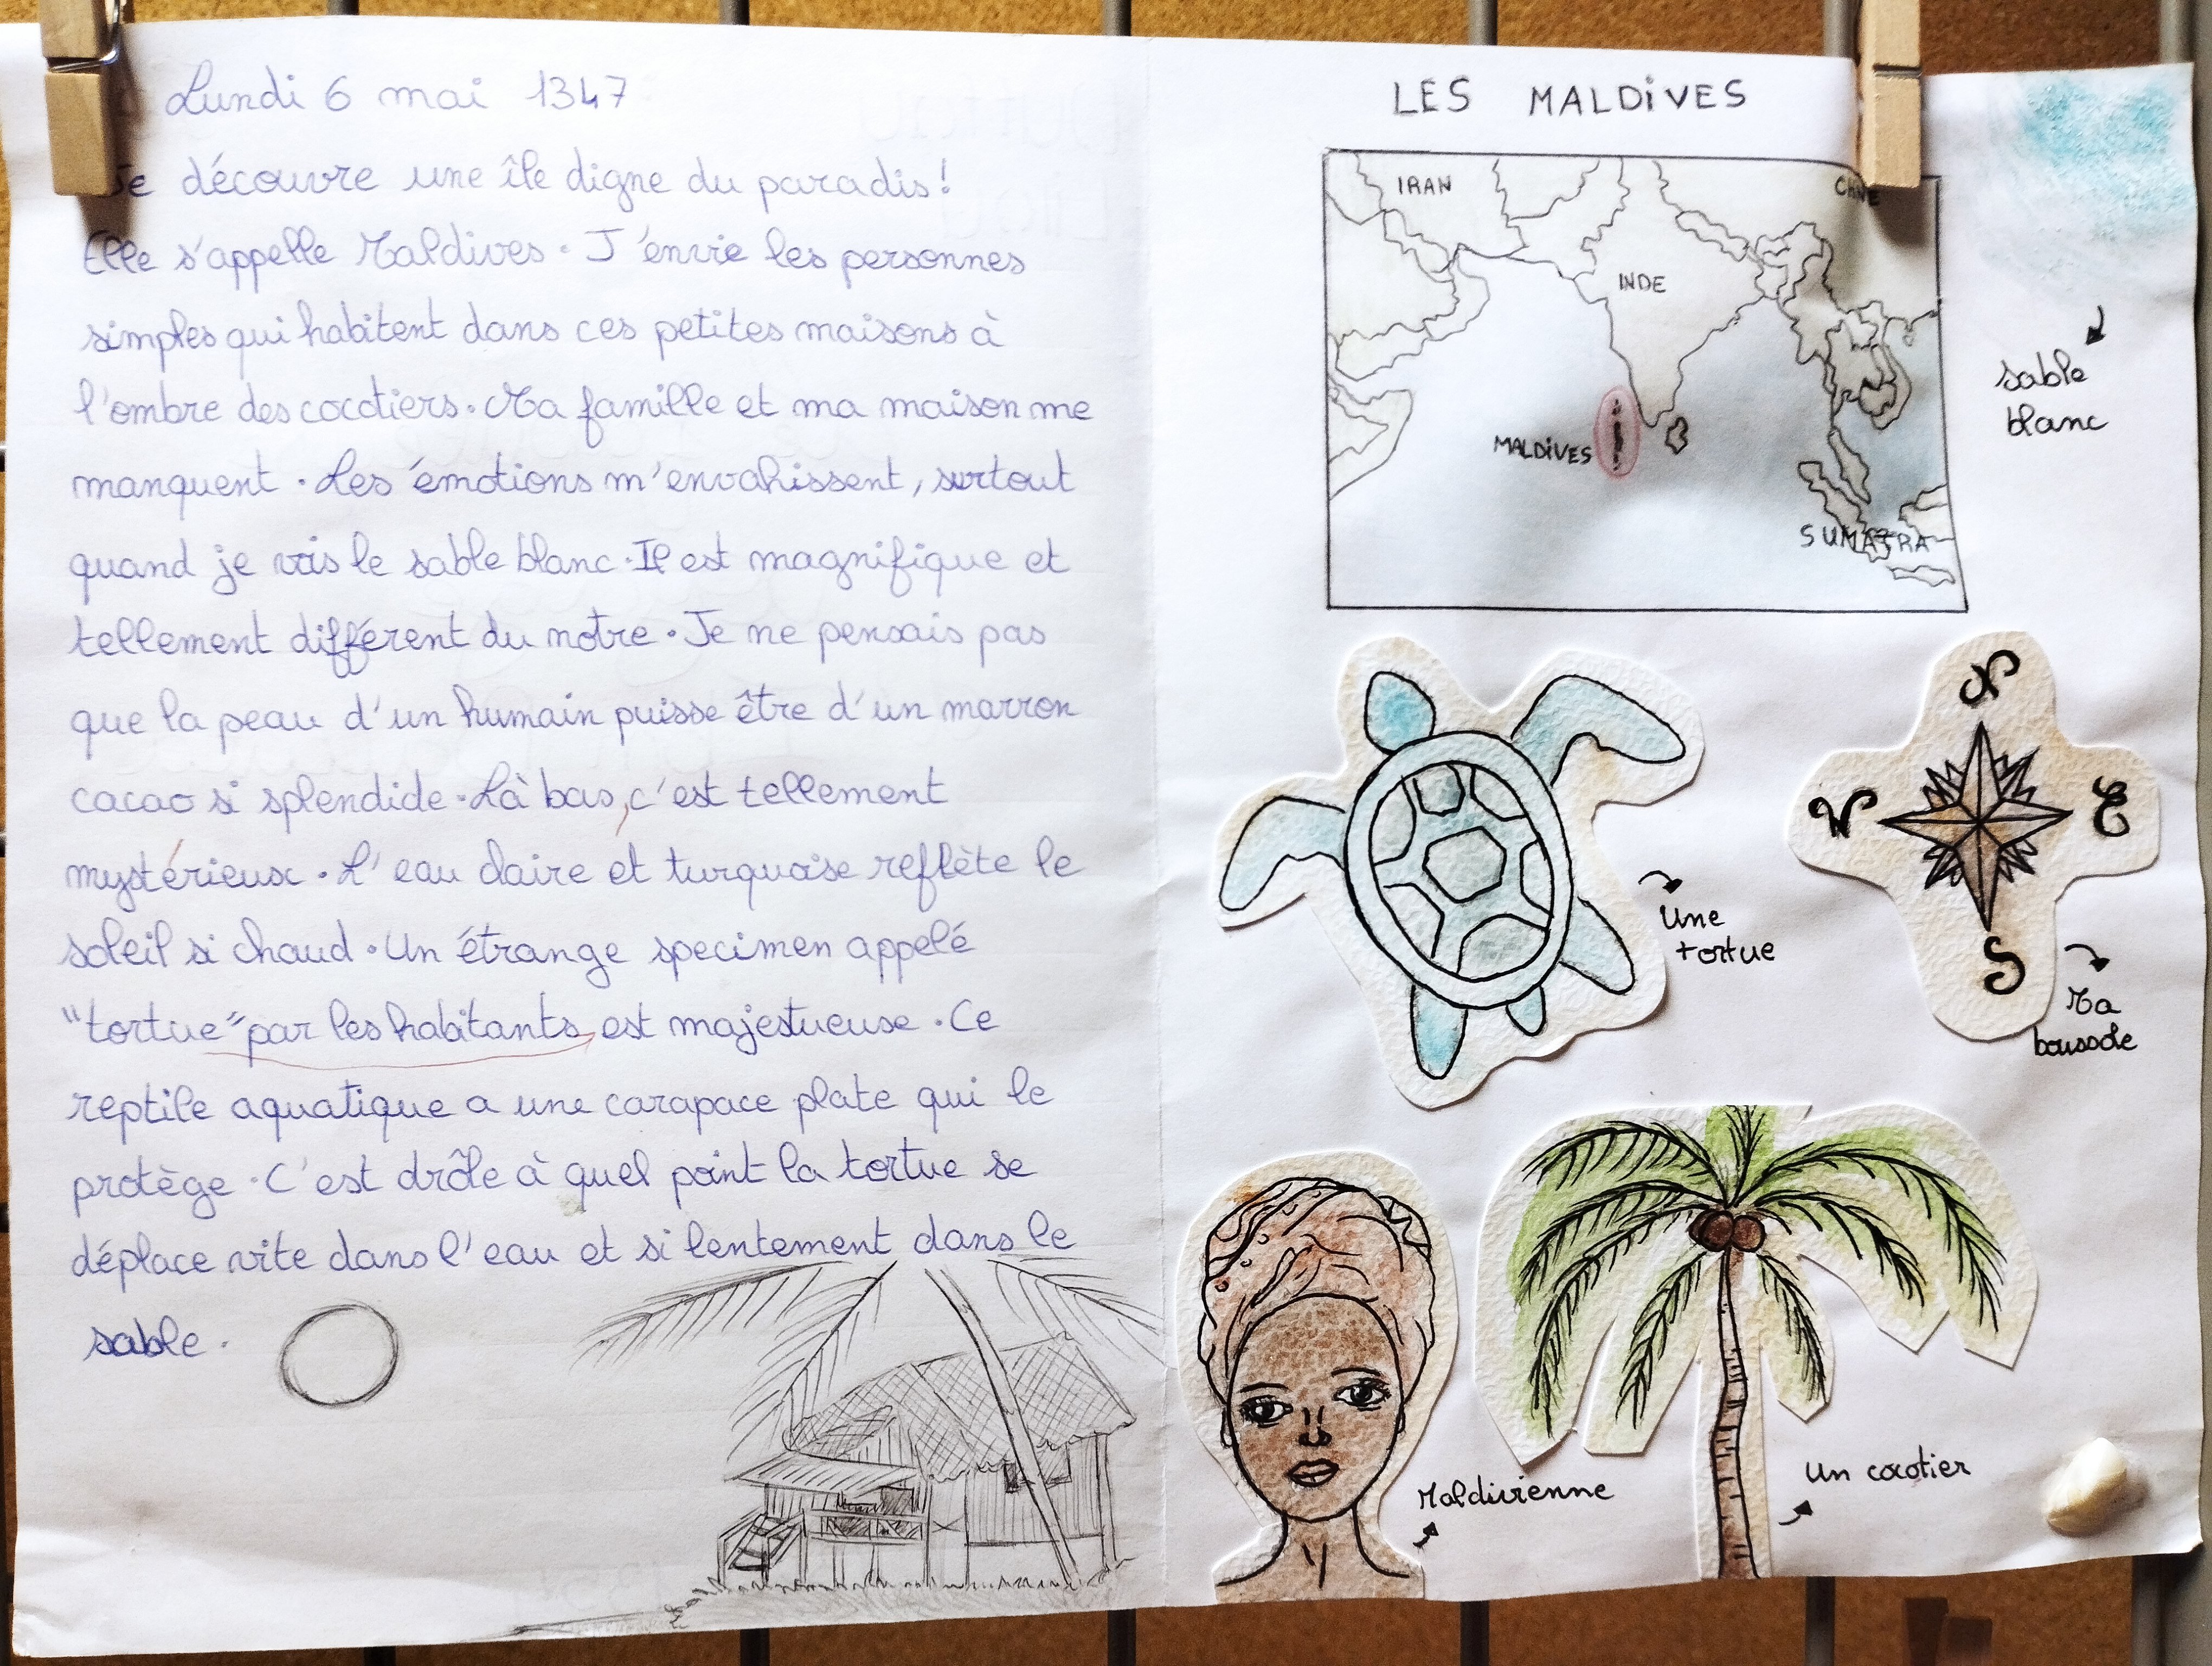 Lundi 6 mai 1347
Je découvre une île digne du paradis!
Elle s'appelle Maldives. J'envie les personnes
simples qui habitent dans ces petites maisons à
l'ombre des cocotiers. Ma famille et ma maison me
manquent. Les émotions m'envahissent, surtout
quand je vois le sable blanc. Il est magnifique et
tellement différent du notre. Je ne pensais pas
que la peau d'un humain puisse être d'un marron
cacao si splendide. Là bas, c'est tellement
mystérieux. L'eau claire et turquoise reflète le
soleil si chaud. Un étrange specimen appelé
"tortue" par les habitants, est majestueuse. Ce
reptile aquatique a une carapace plate qui le
protège. C'est drôle à quel point la tortue se
déplace vite dans l'eau et si lentement dans le
sable.
LES MALDIVES
IRAN
CHINE
INDE
MALDIVES
SUMATRA
sable
blanc
N
W
E
S
Une
tortue
Ma
boussole
Maldivienne
Un cocotier